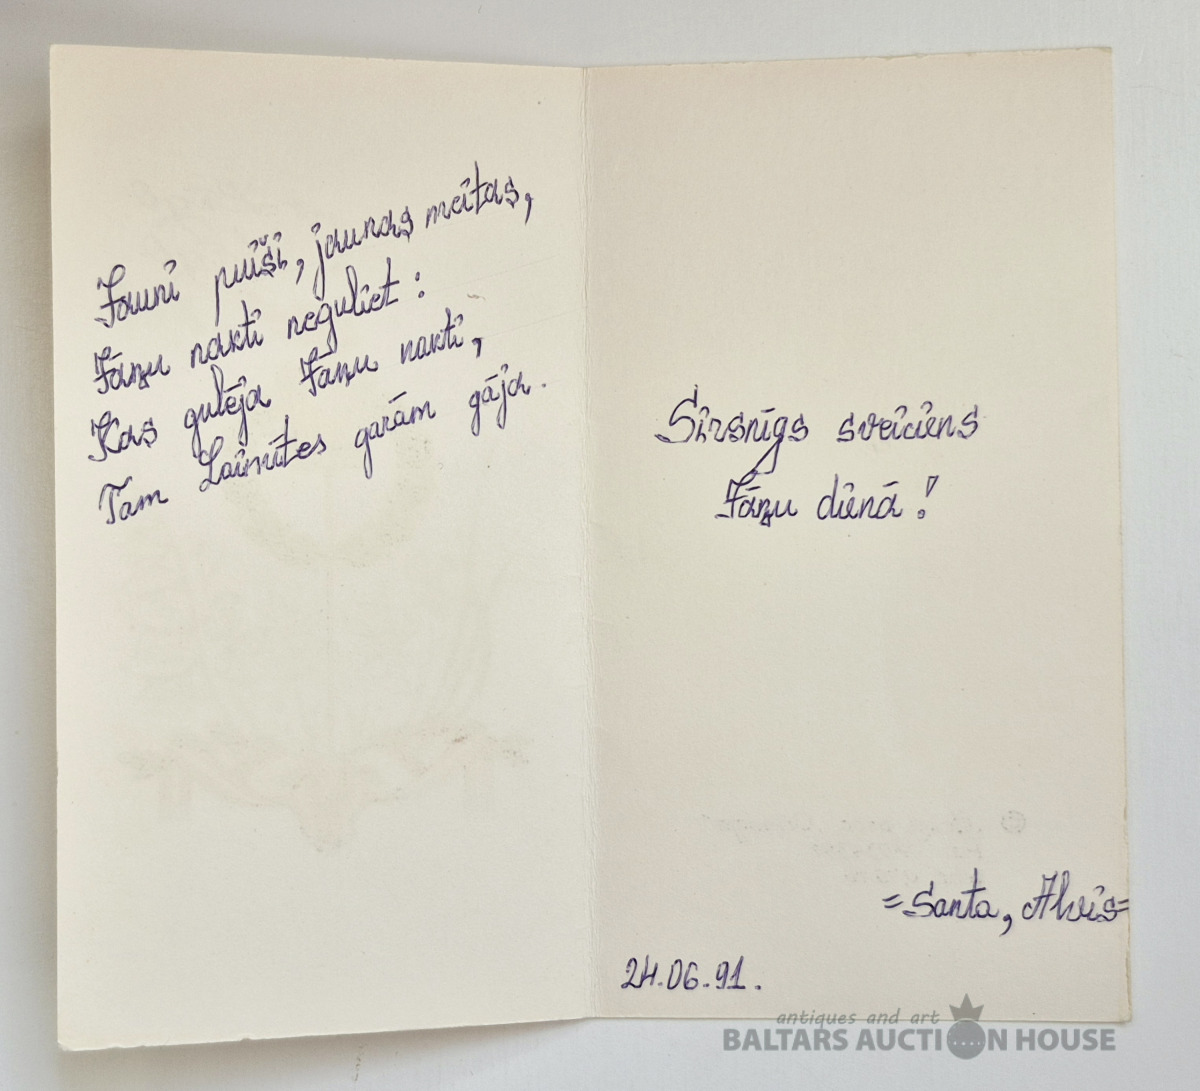 Jauni puiši, jaunas meitas,
Jāņu nakti neguliet:
Kas gulēja Jāņu nakti,
Tam Laimītes garām gāja.
Sirsnīgs sveiciens
Jāņu dienā!
=Santa, Alvis=
24.06.91.
antiques and art
BALTARS AUCTION HOUSE